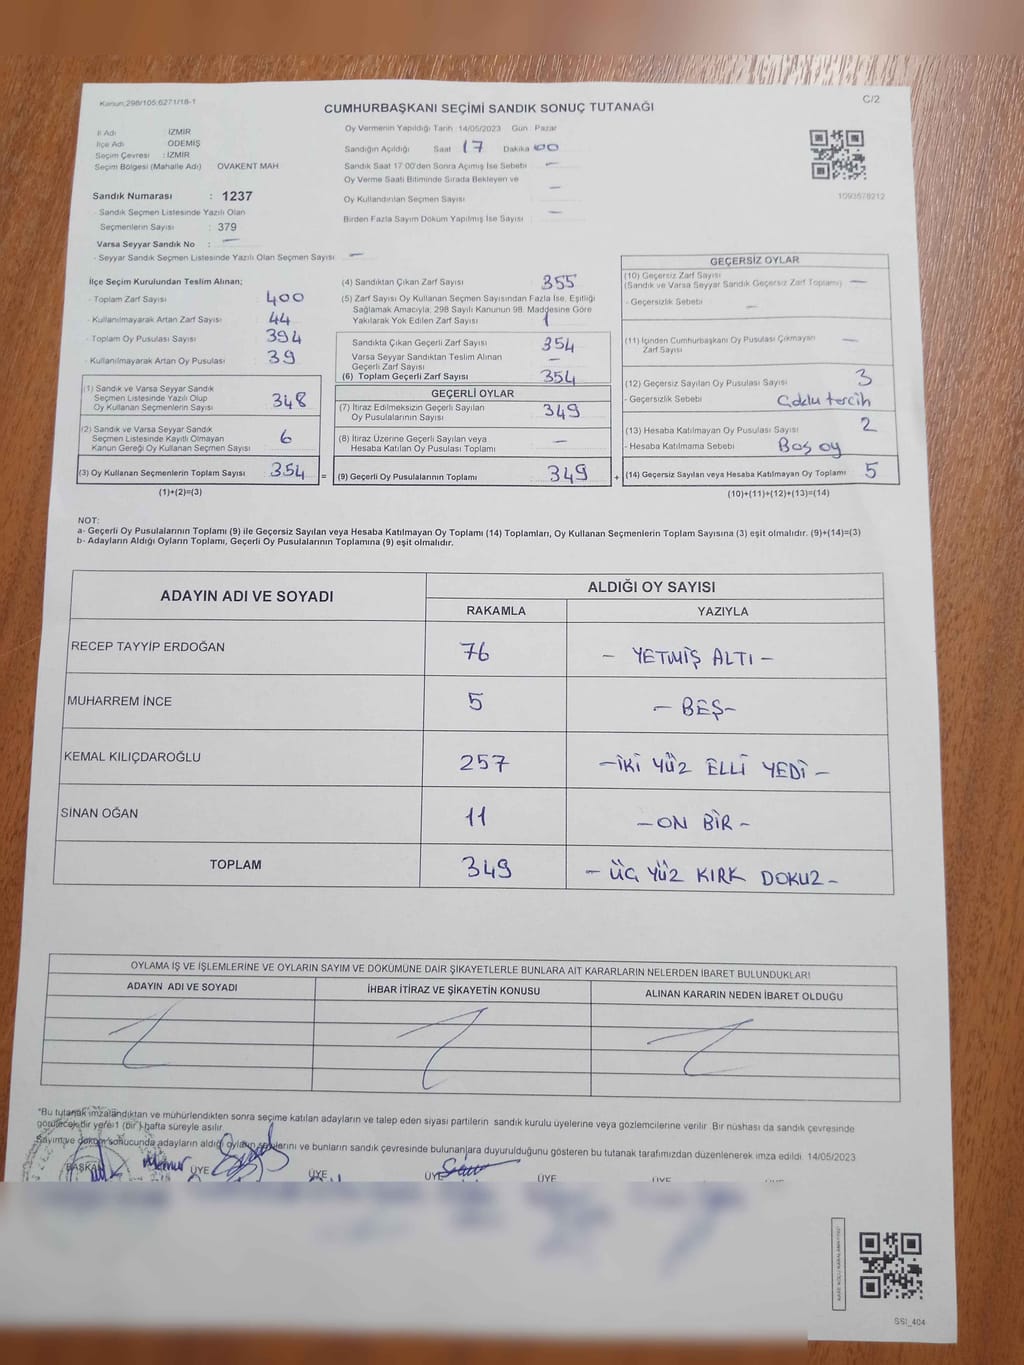 Kanun;298/105;6271/18-1
CUMHURBAŞKANI SEÇİMİ SANDIK SONUÇ TUTANAĞI
C/2
İl Adı : İZMİR
İlçe Adı : ÖDEMİŞ
Seçim Çevresi : İZMİR
Seçim Bölgesi (Mahalle Adı) OVAKENT MAH
Sandık Numarası : 1237
- Sandık Seçmen Listesinde Yazılı Olan
Seçmenlerin Sayısı : 379
Varsa Seyyar Sandık No : —
- Seyyar Sandık Seçmen Listesinde Yazılı Olan Seçmen Sayısı : —
Oy Vermenin Yapıldığı Tarih 14/05/2023 Gün : Pazar
Sandığın Açıldığı Saat 17 Dakika 00
Sandık Saat 17:00'den Sonra Açılmış İse Sebebi : —
Oy Verme Saati Bitiminde Sırada Bekleyen ve
Oy Kullandırılan Seçmen Sayısı : —
Birden Fazla Sayım Döküm Yapılmış İse Sayısı : —
1093578212
İlçe Seçim Kurulundan Teslim Alınan;
- Toplam Zarf Sayısı : 400
- Kullanılmayarak Artan Zarf Sayısı : 44
- Toplam Oy Pusulası Sayısı : 394
- Kullanılmayarak Artan Oy Pusulası : 39
(1) Sandık ve Varsa Seyyar Sandık
Seçmen Listesinde Yazılı Olup
Oy Kullanan Seçmenlerin Sayısı 348
(2) Sandık ve Varsa Seyyar Sandık
Seçmen Listesinde Kayıtlı Olmayan
Kanun Gereği Oy Kullanan Seçmen Sayısı 6
(3) Oy Kullanan Seçmenlerin Toplam Sayısı 354 =
(1)+(2)=(3)
(4) Sandıktan Çıkan Zarf Sayısı 355
(5) Zarf Sayısı Oy Kullanan Seçmen Sayısından Fazla İse, Eşitliği
Sağlamak Amacıyla, 298 Sayılı Kanunun 98. Maddesine Göre
Yakılarak Yok Edilen Zarf Sayısı 1
Sandıkta Çıkan Geçerli Zarf Sayısı 354
Varsa Seyyar Sandıktan Teslim Alınan
Geçerli Zarf Sayısı —
(6) Toplam Geçerli Zarf Sayısı 354
GEÇERLİ OYLAR
(7) İtiraz Edilmeksizin Geçerli Sayılan
Oy Pusulalarının Sayısı 349
(8) İtiraz Üzerine Geçerli Sayılan veya
Hesaba Katılan Oy Pusulası Toplamı —
(9) Geçerli Oy Pusulalarının Toplamı 349 +
GEÇERSİZ OYLAR
(10) Geçersiz Zarf Sayısı
(Sandık ve Varsa Seyyar Sandık Geçersiz Zarf Toplamı) —
- Geçersizlik Sebebi —
(11) İçinden Cumhurbaşkanı Oy Pusulası Çıkmayan
Zarf Sayısı —
(12) Geçersiz Sayılan Oy Pusulası Sayısı 3
- Geçersizlik Sebebi Çoklu tercih
(13) Hesaba Katılmayan Oy Pusulası Sayısı 2
- Hesaba Katılmama Sebebi Boş oy
(14) Geçersiz Sayılan veya Hesaba Katılmayan Oy Toplamı 5
(10)+(11)+(12)+(13)=(14)
NOT:
a- Geçerli Oy Pusulalarının Toplamı (9) ile Geçersiz Sayılan veya Hesaba Katılmayan Oy Toplamı (14) Toplamları, Oy Kullanan Seçmenlerin Toplam Sayısına (3) eşit olmalıdır. (9)+(14)=(3)
b- Adayların Aldığı Oyların Toplamı, Geçerli Oy Pusulalarının Toplamına (9) eşit olmalıdır.
ADAYIN ADI VE SOYADI
ALDIĞI OY SAYISI
RAKAMLA YAZIYLA
RECEP TAYYİP ERDOĞAN 76 - YETMİŞ ALTI -
MUHARREM İNCE 5 - BEŞ -
KEMAL KILIÇDAROĞLU 257 - İKİ YÜZ ELLİ YEDİ -
SİNAN OĞAN 11 - ON BİR -
TOPLAM 349 - ÜÇ YÜZ KIRK DOKUZ -
OYLAMA İŞ VE İŞLEMLERİNE VE OYLARIN SAYIM VE DÖKÜMÜNE DAİR ŞİKAYETLERLE BUNLARA AİT KARARLARIN NELERDEN İBARET BULUNDUKLARI
ADAYIN ADI VE SOYADI İHBAR İTİRAZ VE ŞİKAYETİN KONUSU ALINAN KARARIN NEDEN İBARET OLDUĞU
"Bu tutanak imzalandıktan ve mühürlendikten sonra seçime katılan adayların ve talep eden siyasi partilerin sandık kurulu üyelerine veya gözlemcilerine verilir. Bir nüshası da sandık çevresinde
görülecek bir yere 1 (bir) hafta süreyle asılır.
Sayım ve döküm sonucunda adayların aldığı oyların sayılarını ve bunların sandık çevresinde bulunanlara duyurulduğunu gösteren bu tutanak tarafımızdan düzenlenerek imza edildi. 14/05/2023
BAŞKAN Memur ÜYE ÜYE ÜYE ÜYE ÜYE
SSI_404